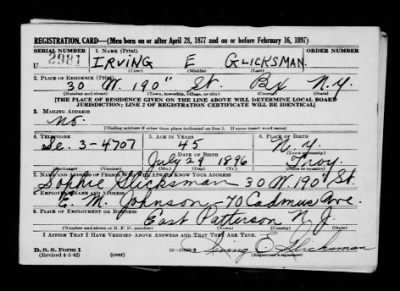 REGISTRATION CARD—(Men born on or after April 28, 1877 and on or before February 16, 1897)
SERIAL NUMBER 1. NAME (Print) ORDER NUMBER
U 2981 IRVING E GLICKSMAN
(First) (Middle) (Last)
2. PLACE OF RESIDENCE (Print)
30 W. 190" St Bx N.Y.
(Number and street) (Town, township, village, or city) (County) (State)
[THE PLACE OF RESIDENCE GIVEN ON THE LINE ABOVE WILL DETERMINE LOCAL BOARD
JURISDICTION; LINE 2 OF REGISTRATION CERTIFICATE WILL BE IDENTICAL]
3. MAILING ADDRESS
no.
[Mailing address if other than place indicated on line 2. If same insert word same]
4. TELEPHONE 5. AGE IN YEARS 6. PLACE OF BIRTH
Se. 3-4707 45 N.Y.
DATE OF BIRTH
July 29 1896 Troy
7. NAME AND ADDRESS OF PERSON WHO WILL ALWAYS KNOW YOUR ADDRESS
Sophie Glicksman 30 W. 190" St.
8. EMPLOYER'S NAME AND ADDRESS
E. M. Johnson - 70 Cadmus Ave.
9. PLACE OF EMPLOYMENT OR BUSINESS
East Patterson N.J.
(Number and street or R. F. D. number) (Town) (County) (State)
I AFFIRM THAT I HAVE VERIFIED ABOVE ANSWERS AND THAT THEY ARE TRUE.
D. S. S. Form 1
(Revised 4-1-42) Irving E Glicksman